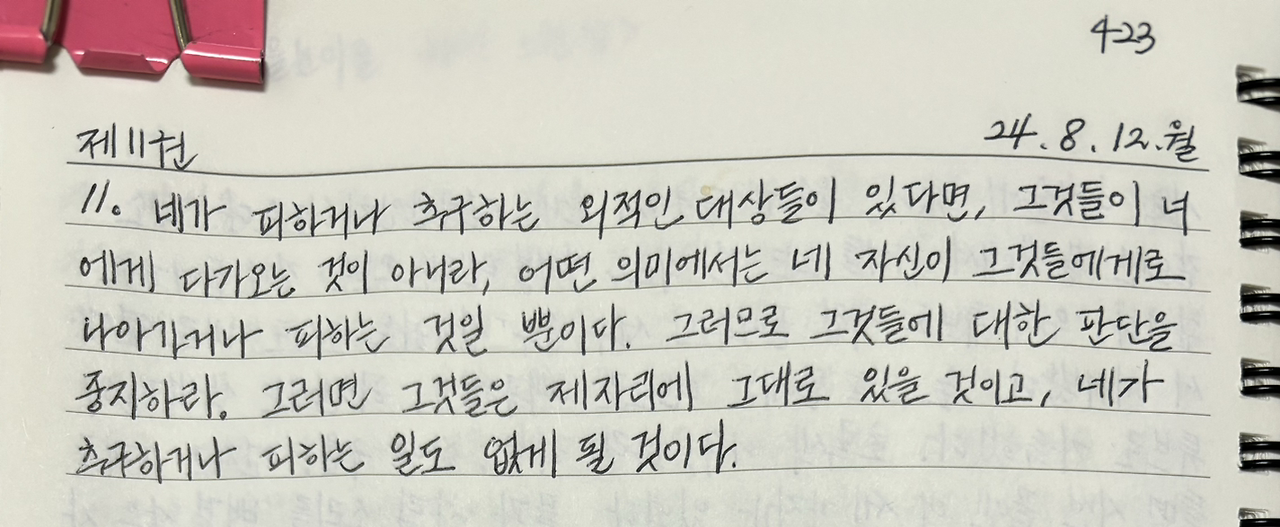 423
제11권 24.8.12.월
11. 네가 피하거나 추구하는 외적인 대상들이 있다면, 그것들이 너
에게 다가오는 것이 아니라, 어떤 의미에서는 네 자신이 그것들에게로
나아가거나 피하는 것일 뿐이다. 그러므로 그것들에 대한 판단을
중지하라. 그러면 그것들은 제자리에 그대로 있을 것이고, 네가
추구하거나 피하는 일도 없게 될 것이다.